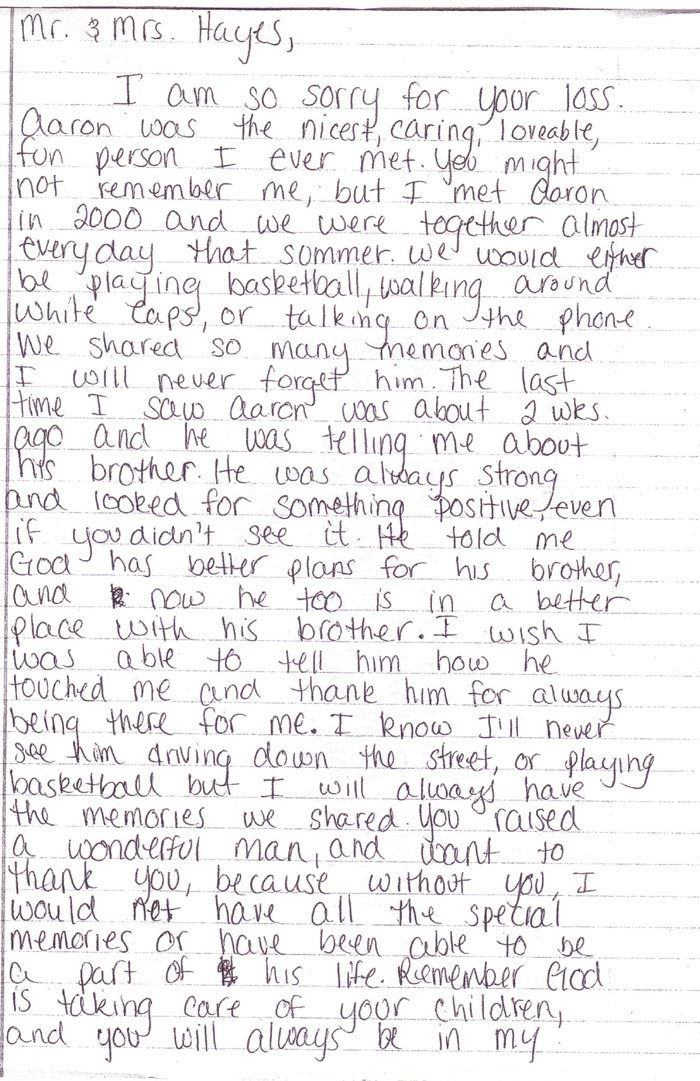 Mr. & Mrs. Hayes,
I am so sorry for your loss.
Aaron was the nicest, caring, loveable,
fun person I ever met. You might
not remember me, but I met Aaron
in 2000 and we were together almost
everyday that summer. We would either
be playing basketball, walking around
White Caps, or talking on the phone.
We shared so many memories and
I will never forget him. The last
time I saw Aaron was about 2 wks.
ago and he was telling me about
his brother. He was always strong
and looked for something positive, even
if you didn't see it. He told me
God has better plans for his brother,
and now he too is in a better
place with his brother. I wish I
was able to tell him how he
touched me and thank him for always
being there for me. I know I'll never
see him driving down the street, or playing
basketball but I will always have
the memories we shared. You raised
a wonderful man, and want to
thank you, because without you, I
would not have all the special
memories or have been able to be
a part of his life. Remember God
is taking care of your children,
and you will always be in my